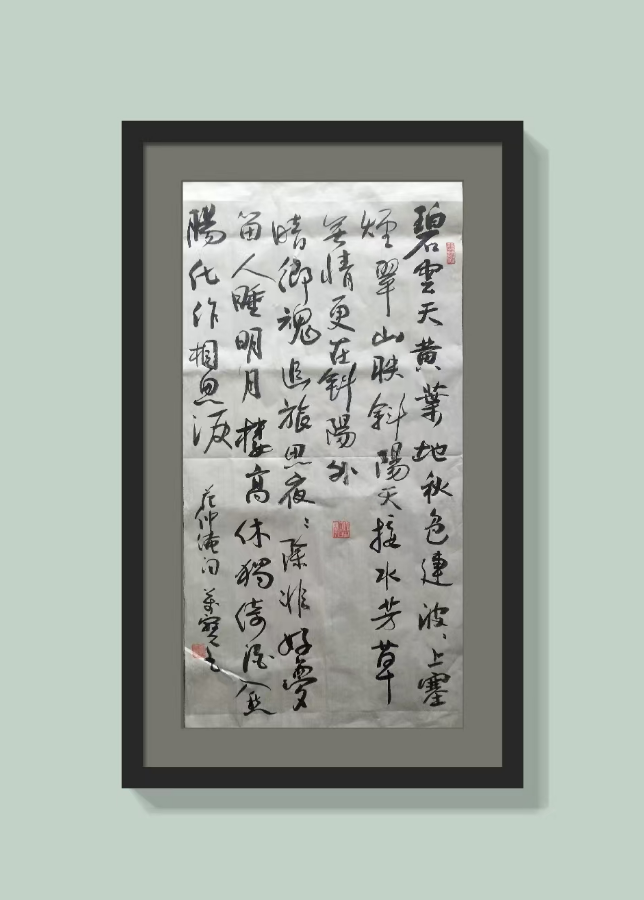 碧雲天黄葉地秋色連波、上寒
煙翠山映斜陽天接水芳草
無情更在斜陽外
黯鄉魂追旅思夜ミ除非好夢
留人睡明月樓高休獨倚酒入愁
腸化作相思淚
范仲淹詞